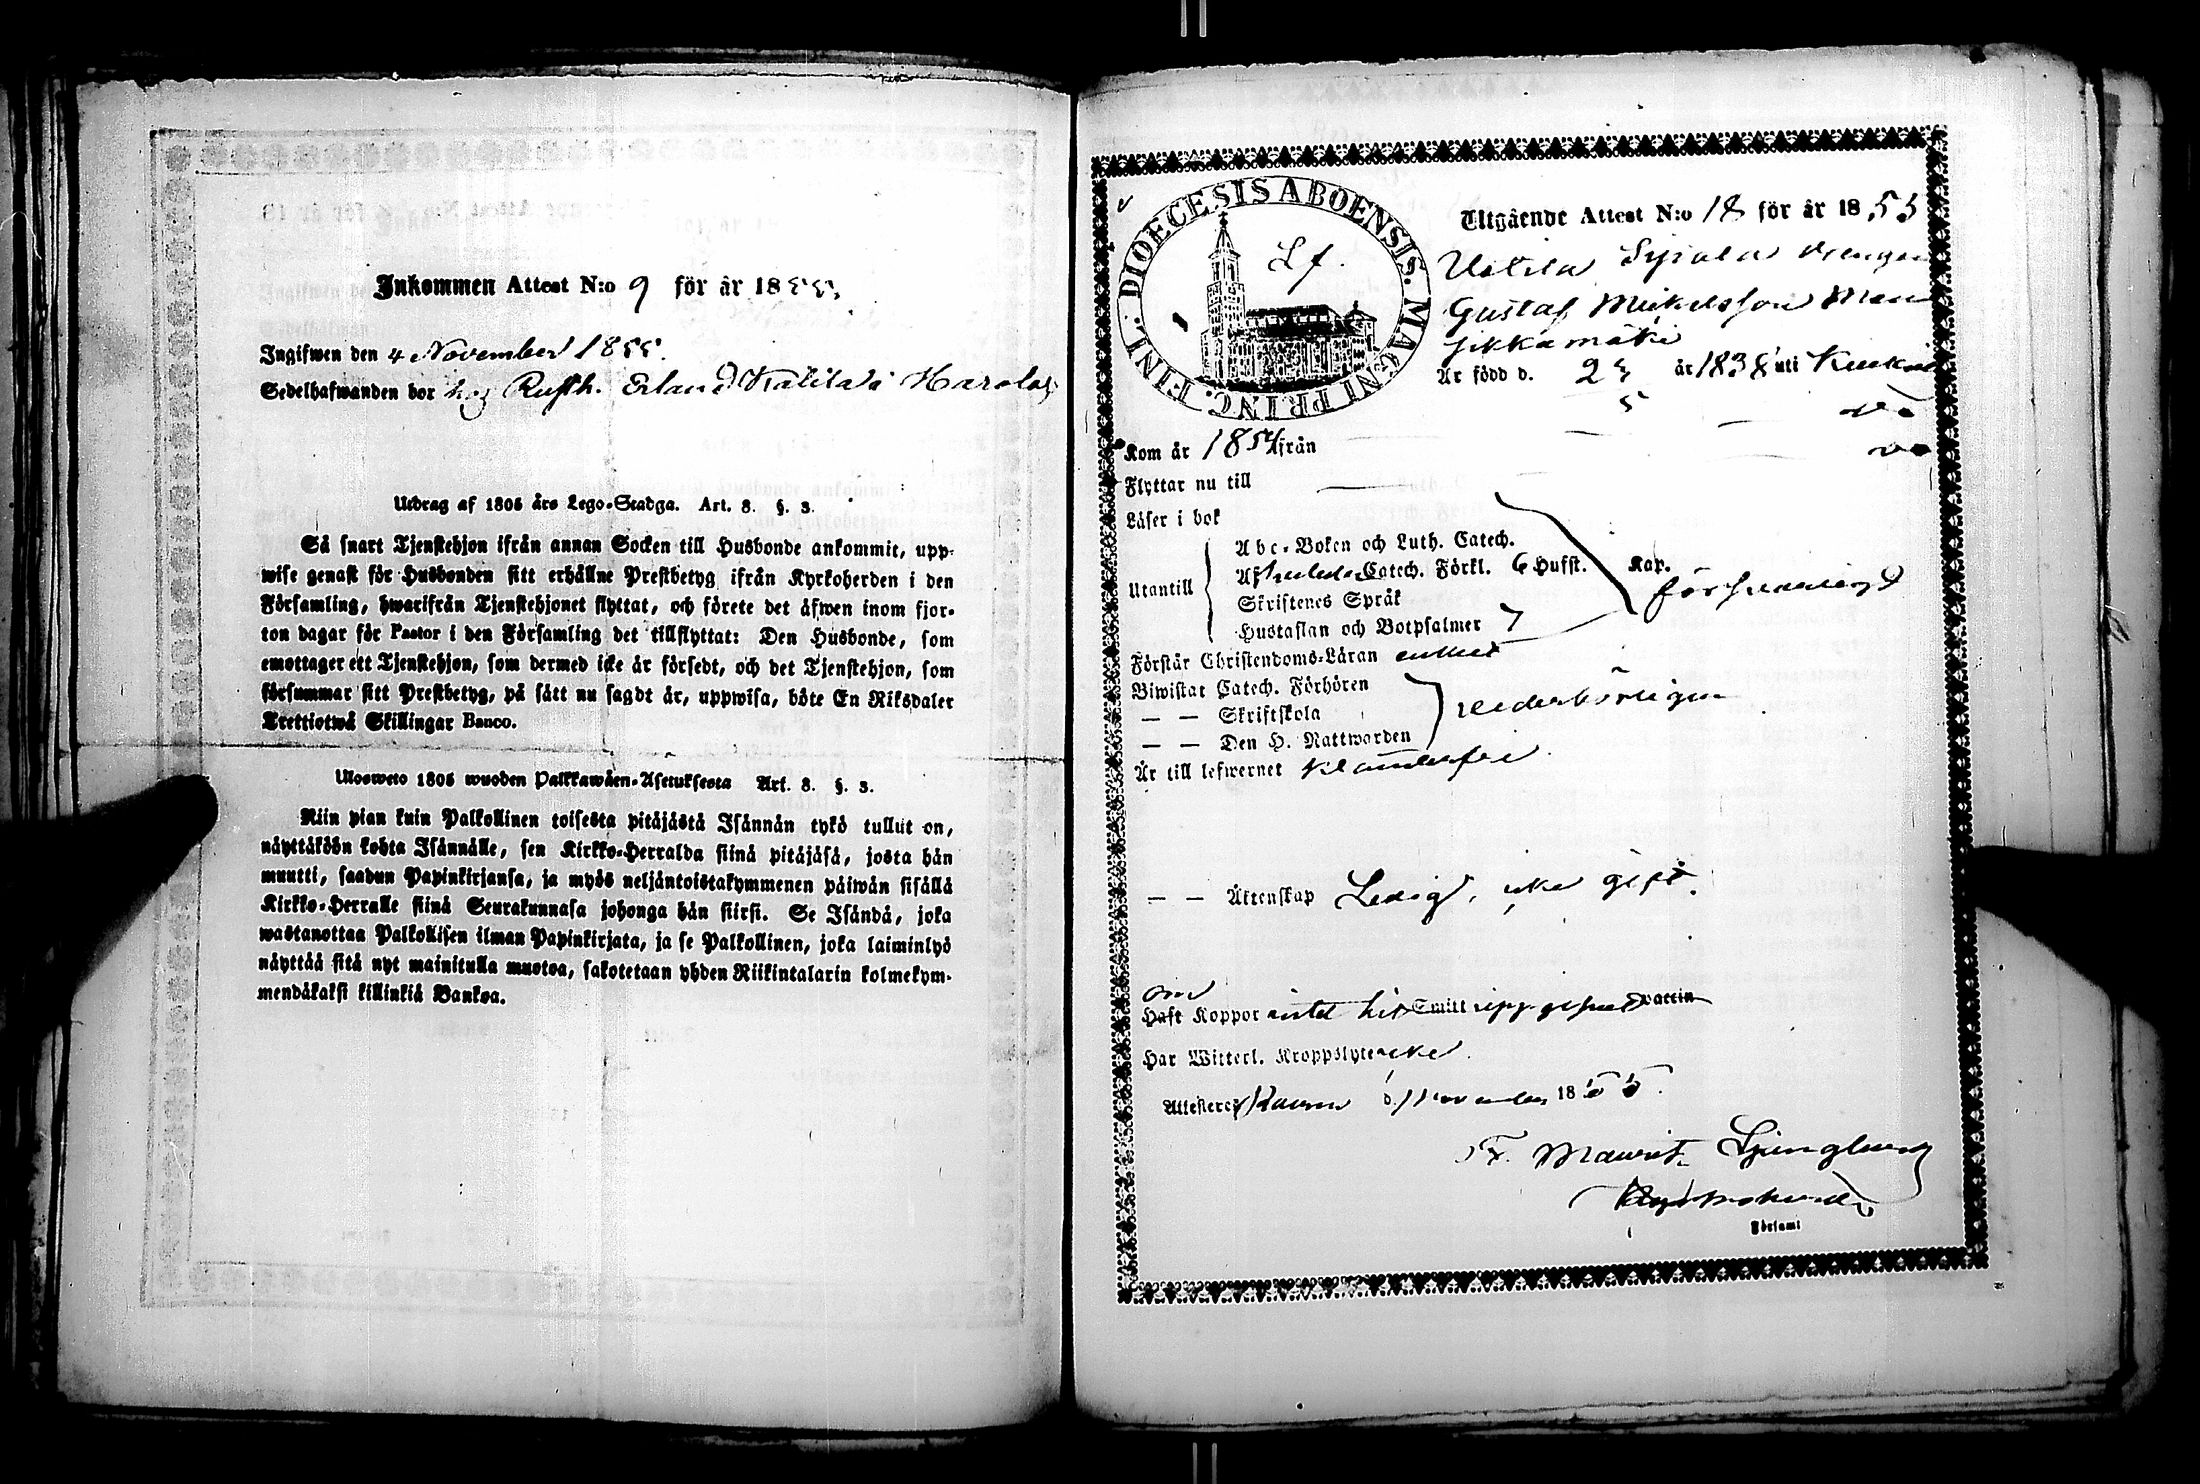 Inkommen Attest N:o 9 för år 1855.
Ingifwen den 4 November 1855.
Sedelhafwanden bor hos Rusth. Erland Kalila i Harola
Utdrag af 1805 års Lego-Stadga. Art. 8. §. 3.
Så snart Tjenstehjon ifrån annan Socken till Husbonde ankommit, upp-
wise genast för Husbonden sitt erhållne Prestbetyg ifrån Kyrkoherden i den
Församling, hwarifrån Tjenstehjonet flyttat, och förete det äfwen inom fjor-
ton dagar för Pastor i den Församling det tillflyttat: Den Husbonde, som
emottager ett Tjenstehjon, som dermed icke är försedt, och det Tjenstehjon, som
försummar sitt Prestbetyg, på sätt nu sagdt är, uppwisa, böte En Riksdaler
Trettiotwå Skillingar Banco.
Ulosweto 1805 wuoden Palkkawäen-Asetuksesta Art. 8. §. 3.
Niin pian kuin Palkollinen toisesta pitäjästä Isännän tykö tullut on,
näyttäköön kohta Isännälle, sen Kirkko-Herralda siinä pitäjäsä, josta hän
muutti, saadun Papinkirjansa, ja myös neljäntoistakymmenen päiwän sisällä
Kirkko-Herralle siinä Seurakunnasa johonga hän siirsi. Se Isändä, joka
wastanottaa Palkollisen ilman Papinkirjata, ja se Palkollinen, joka laiminlyö
näyttää sitä nyt mainitulla muotoa, sakotetaan yhden Riikintalarin kolmekym-
mendäkaksi killinkiä Bankoa.
DIOECESIS ABOENSIS. MAGNI PRINC. FINL.
Lf.
Utgående Attest N:o 18 för år 1855
Uotila Sjsala drengen
Gustaf Mickelsson
Är född d. 23/5 år 1838 uti
Kom år 1854 från
Flyttar nu till
Läser i bok
Abc-Boken och Luth. Catech.
Utantill
Catech. Förkl. 6 Husst. Kap.
Skriftenes Språk
försvarligt
Hustaflan och Botpsalmer 7
Förstår Christendoms-Läran enkelt
Biwistat Catech. Förhören
— — Skriftskola
vederbörligen
— — Den H. Nattwarden
Är till lefwernet klanderfri
— — Äktenskap Ledig, icke gift.
om
Haft Koppor intet hit Smitt uppgifwet vaccin
Har Witterl. Kroppslyte icke
Attesterar d. 1 November 1855.
Fr. Maurit Ljunglund
Församl